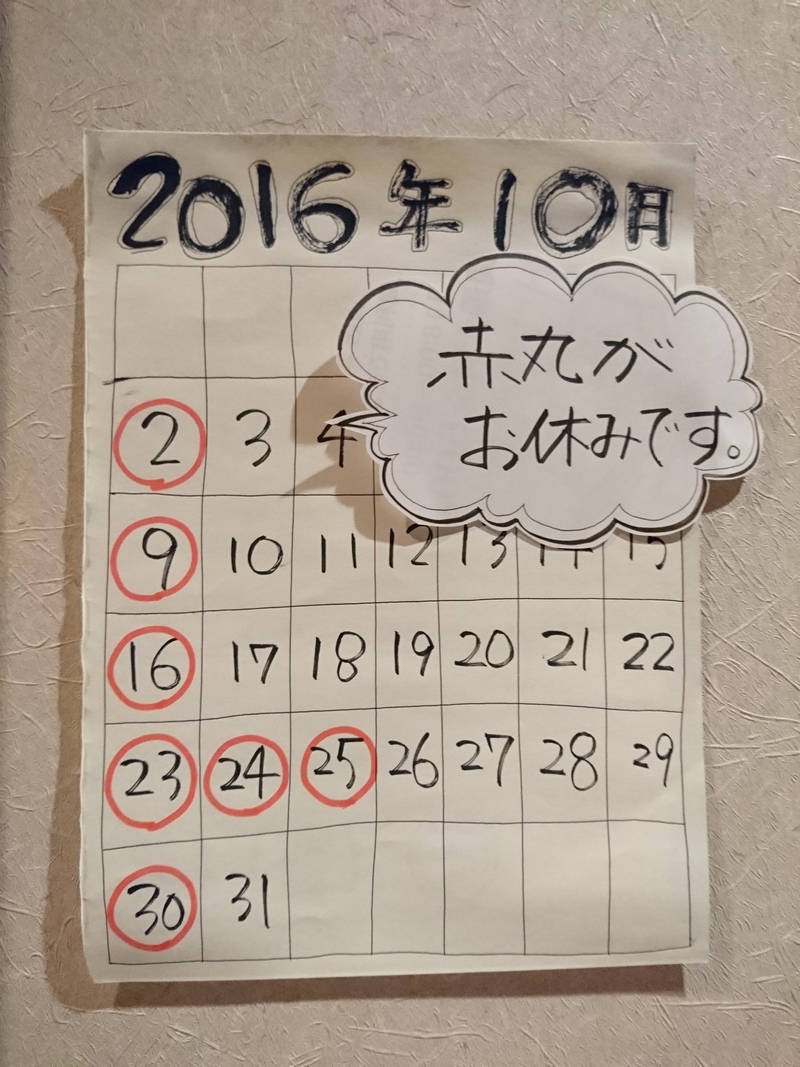 2016年10月
赤丸が
お休みです。
2 3 4
9 10 11 12 13 14 15
16 17 18 19 20 21 22
23 24 25 26 27 28 29
30 31